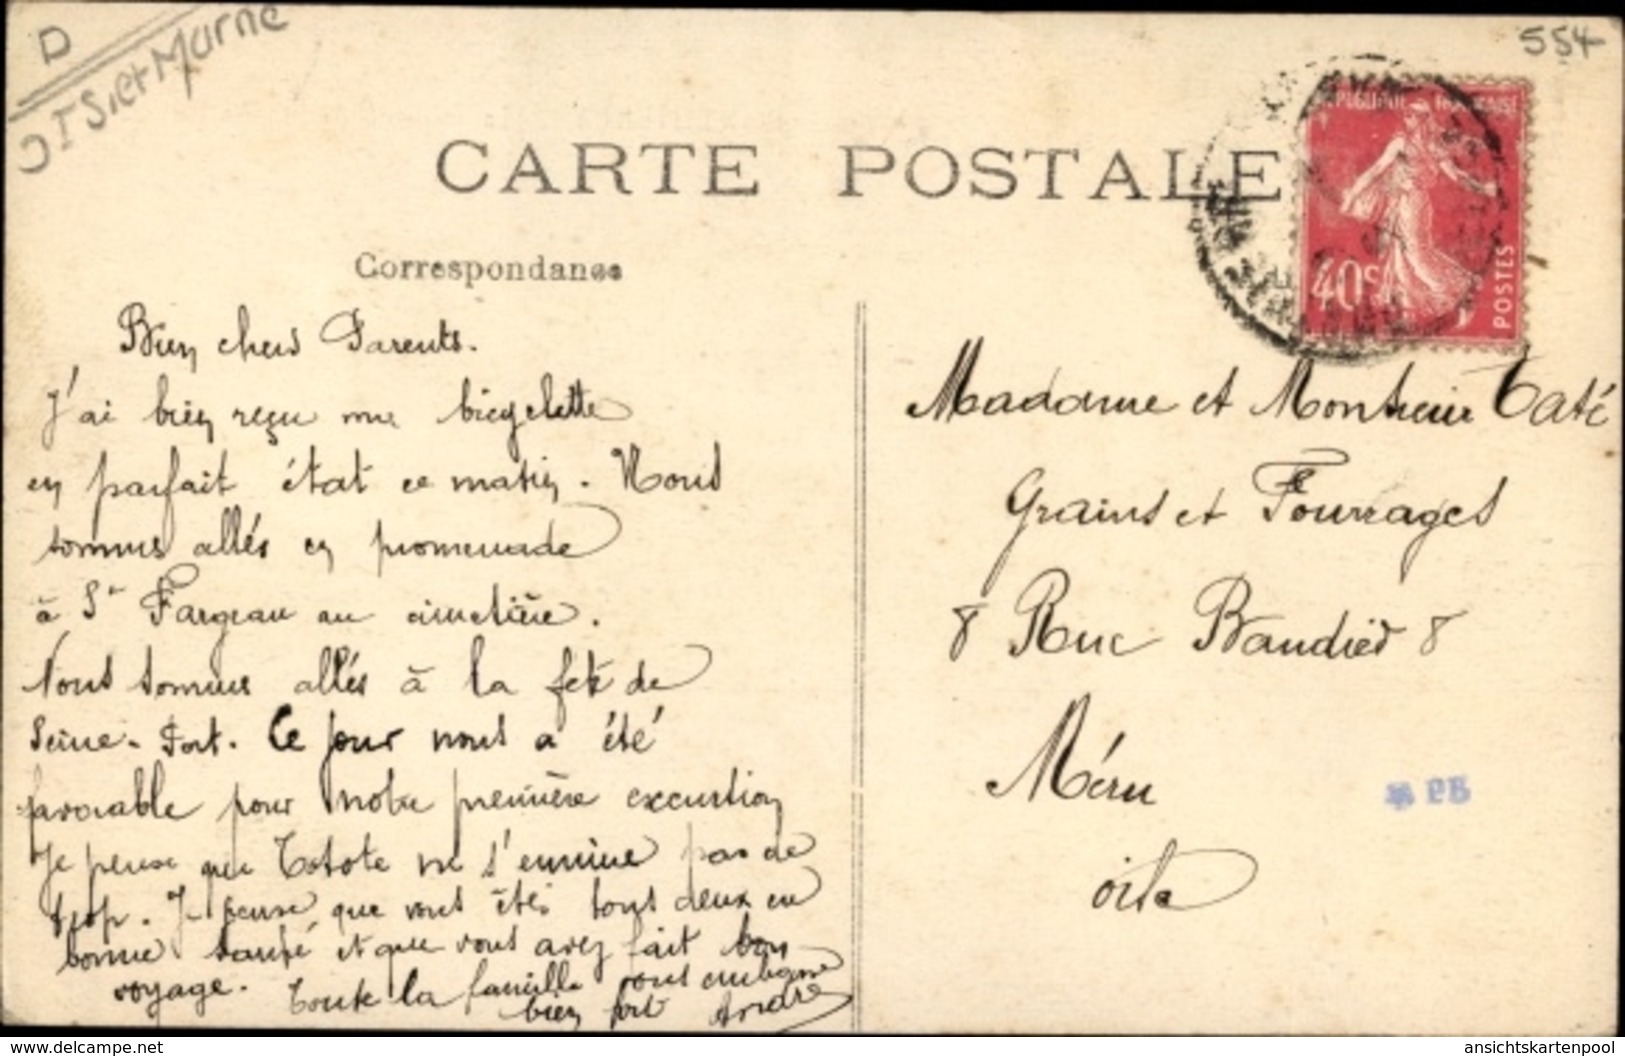 D
77 S. et Marne
554
CARTE POSTALE
Correspondance
REPUBLIQUE FRANÇAISE
40c
POSTES
Bien chers Parents.
J'ai bien reçu ma bicyclette
en parfait état ce matin. Nous
sommes allés en promenade
à St Fargeau au cimetière.
Nous sommes allés à la fête de
Seine-Port. Ce jour nous a été
favorable pour notre première excurtion
Je pense que Totote ne s'ennuie pas de
trop. Je pense que vous êtes tous deux en
bonne santé et que vous avez fait bon
voyage. Toute la famille vous embrasse
bien fort André
Madame et Monsieur Taté
Grains et Fourrages
8 Rue Baudier 8
Méru
Oise
PB
www.delcampe.net
ansichtskartenpool